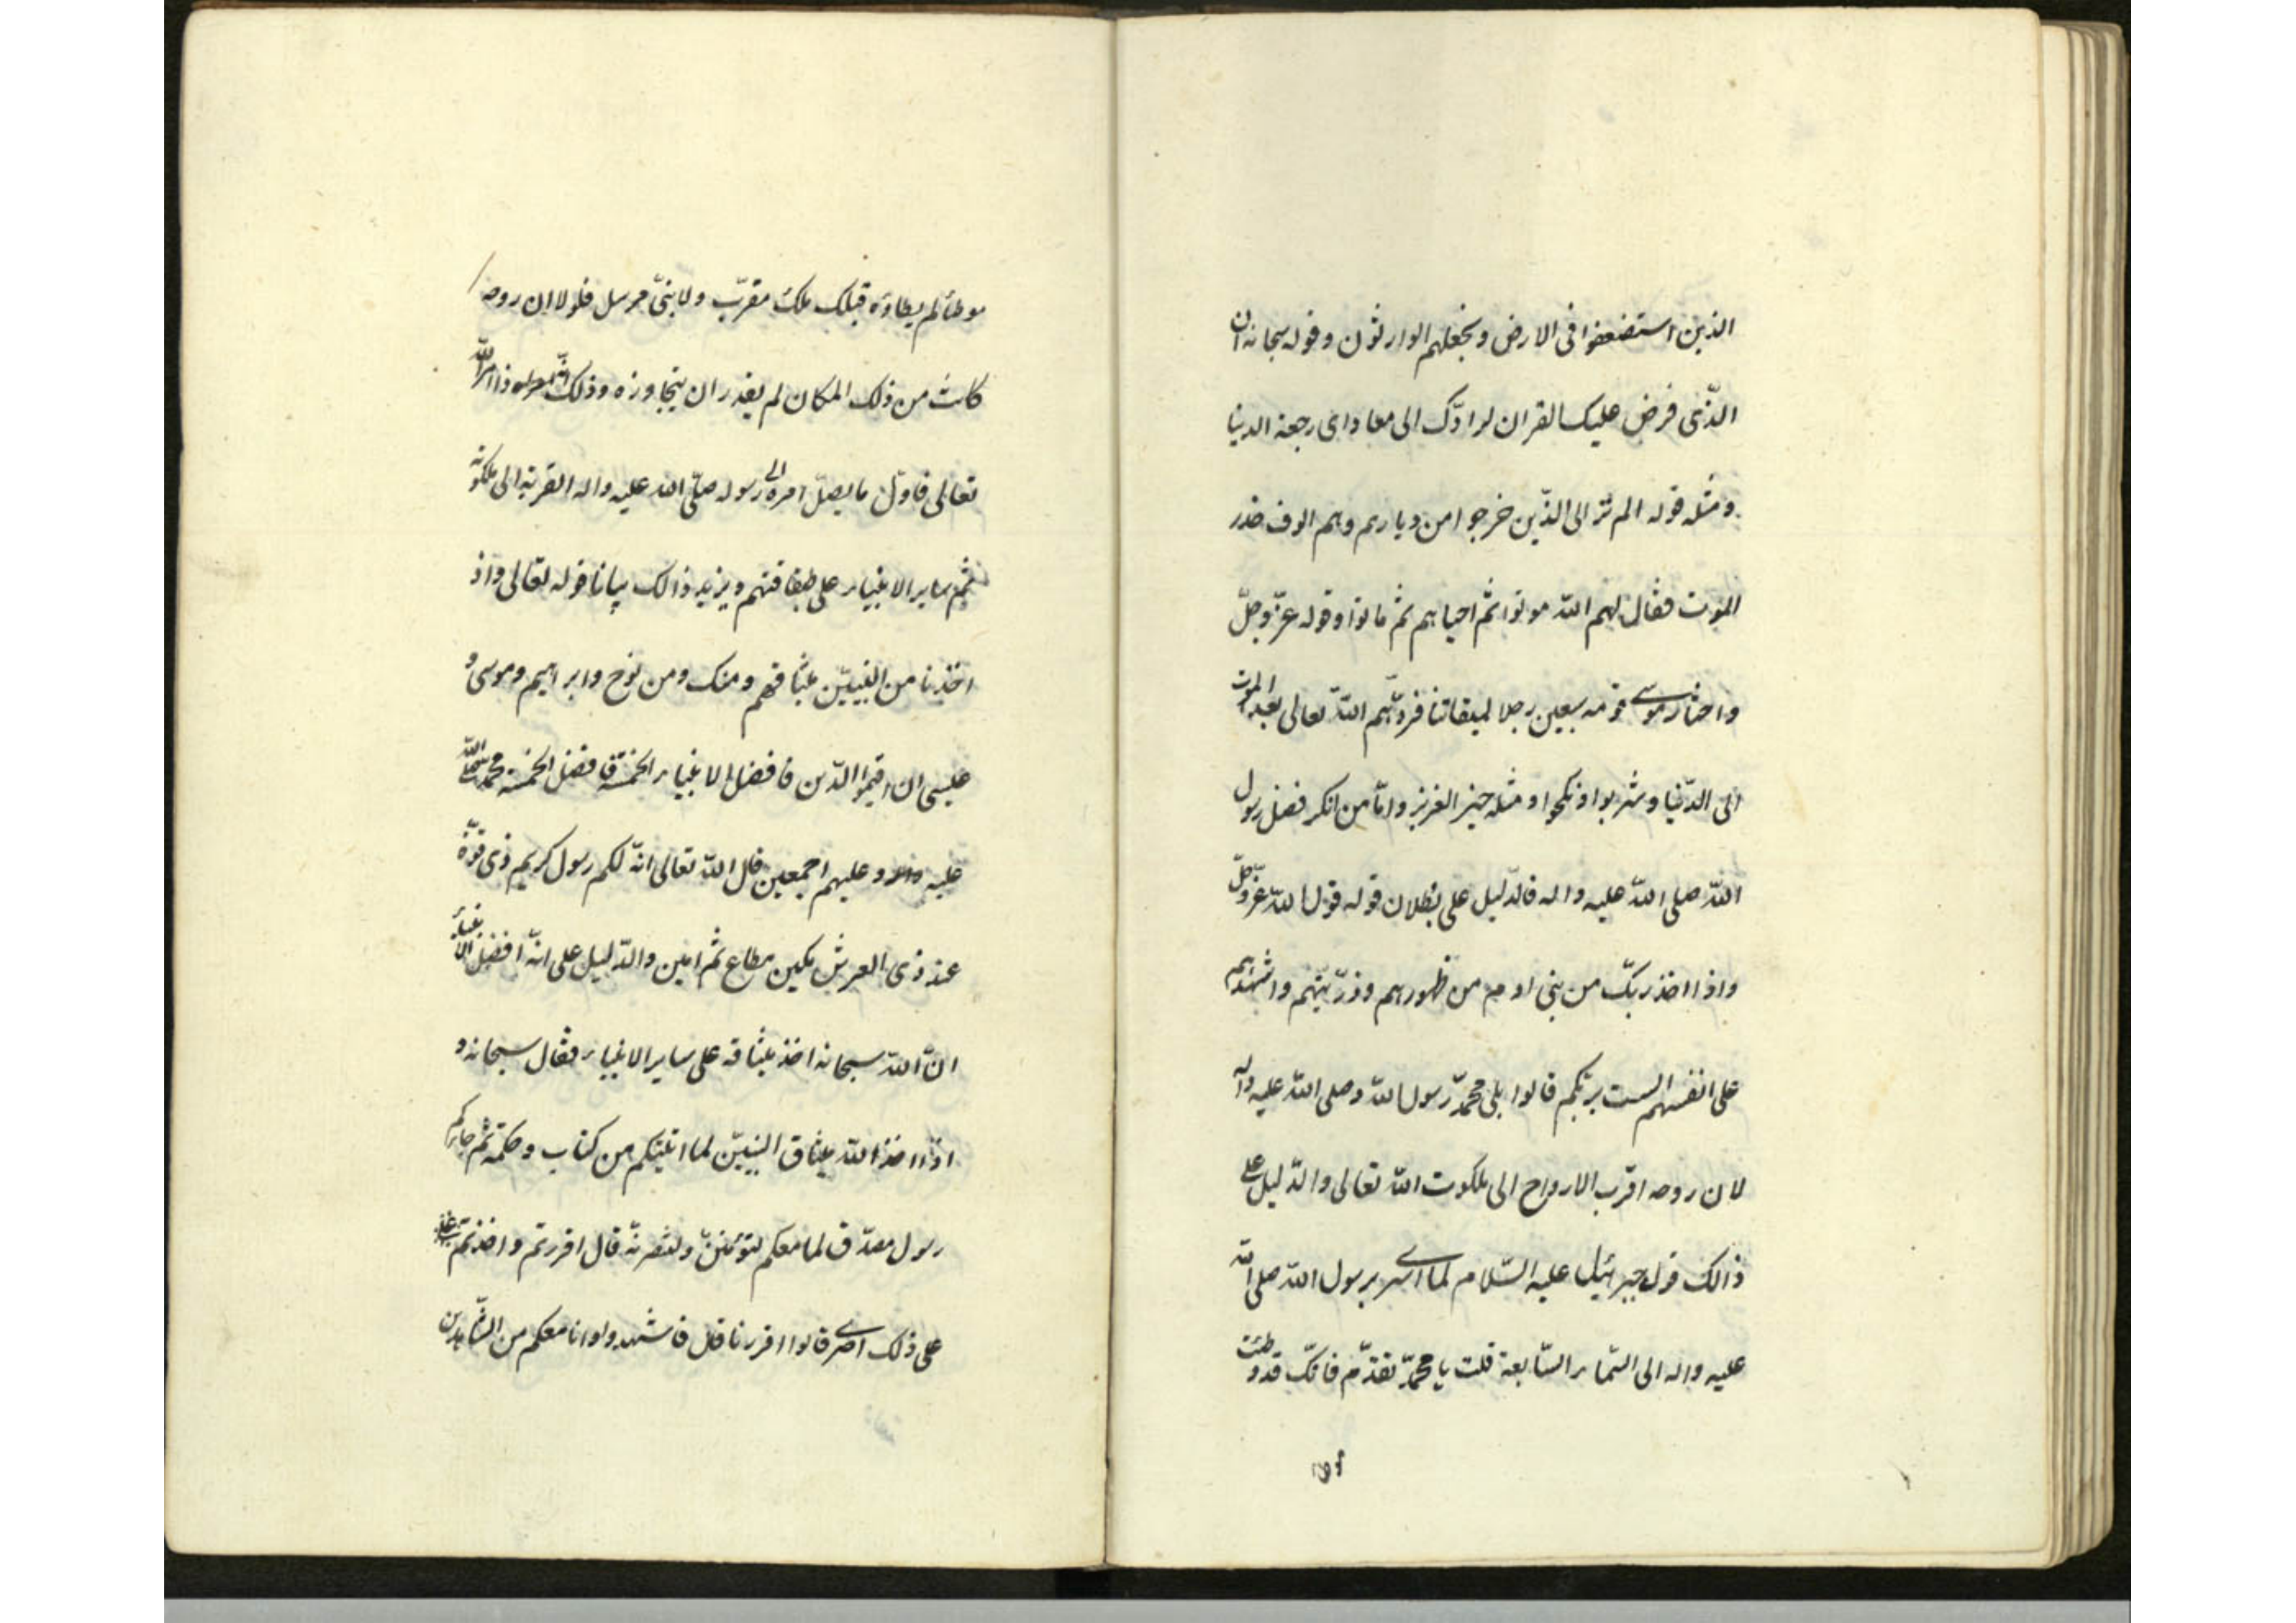 الذين استضعفوا فى الارض ونجعلهم الوارثون وقوله سبحانه ان
الذّى فرض عليك القران لرادّك الى معاد اى رجعة الدنيا
ومثله قوله الم تر الى الذّين خرجوا من ديارهم وهم الوف حذر
الموت فقال لهم اللّه موتوا ثم احياهم ثم ماتوا وقوله عزّ وجلّ
واختار موسى قومه سبعين رجلا لميقاتنا فردّهم اللّه تعالى بعد الموت
الى الدّنيا وشربوا ونكحوا ومثله خبر العزيز وامّا من انكر فضل رسول
اللّه صلى اللّه عليه واله فالدّليل على بطلان قوله قول اللّه عزّ وجلّ
واذا اخذ ربّك من بنى ادم من ظهورهم وذرّيتهم واشهدهم
على انفسهم الست بربّكم قالوا بلى محمّد رسول اللّه وصلى اللّه عليه واله
لان روحه اقرب الارواح الى ملكوت اللّه تعالى والدّليل على
ذالك قول جبرائيل عليه السّلام لما اسرى برسول اللّه صلى اللّه
عليه واله الى السّماء السّابعة قلت يا محمّد تقدّم فانّك قد وطئت
موطأ لم يطاؤه قبلك ملك مقرّب ولا نبىّ مرسل فلولا ان روحه
كانت من ذلك المكان لم يقدر ان يتجاوزه وذلك انّه اذا امر اللّه
تعالى فاول ما يصل امره الى رسوله صلّى اللّه عليه واله القربة الى ملكوته
ثم ساير الانبياء على طبقاتهم ويزيد ذالك بيانا قوله تعالى واذ
اخذنا من النبيّين ميثاقهم ومنك ومن نوح وابراهيم وموسى و
عيسى ان اقيموا الدّين فافضل الانبياء الخمسة فافضل الخمسة محمّد صلى اللّه
عليه واله وعليهم اجمعين قال اللّه تعالى انّه لكم رسول كريم ذى قوّة
عند ذى العرش مكين مطاع ثم امين والدّليل على انّه افضل الانبياء
انّ اللّه سبحانه اخذ ميثاقه على ساير الانبياء فقال سبحانه و
اذا اخذ اللّه ميثاق النبيّن لما اتيتكم من كتاب وحكمة ثم جاءكم
رسول مصدّق لما معكم لتؤمننّ ولتنصرنّه قال اقررتم واخذتم
على ذلك اصرى قالوا اقررنا قال فاشهدوا وانا معكم من الشّاهدين